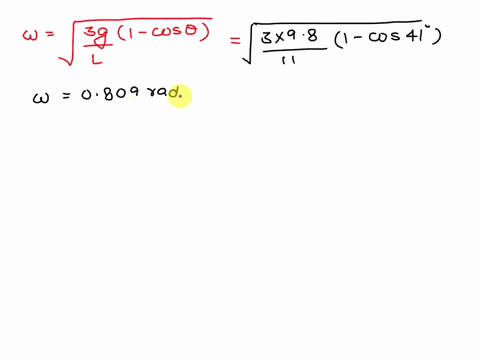 ω = √(3g/L (1 - cosθ)) = √(3×9.8/11 (1 - cos 41°))
ω = 0.809 rad.